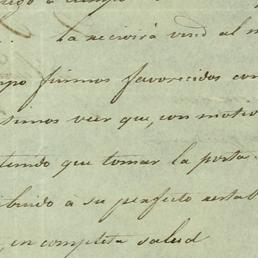 la recivirá vmd al m
po fuimos favorecidos con
timos veer que, con motivo
tenido que tomar la posta
ibuido á su perfecto restab
, en completa salud